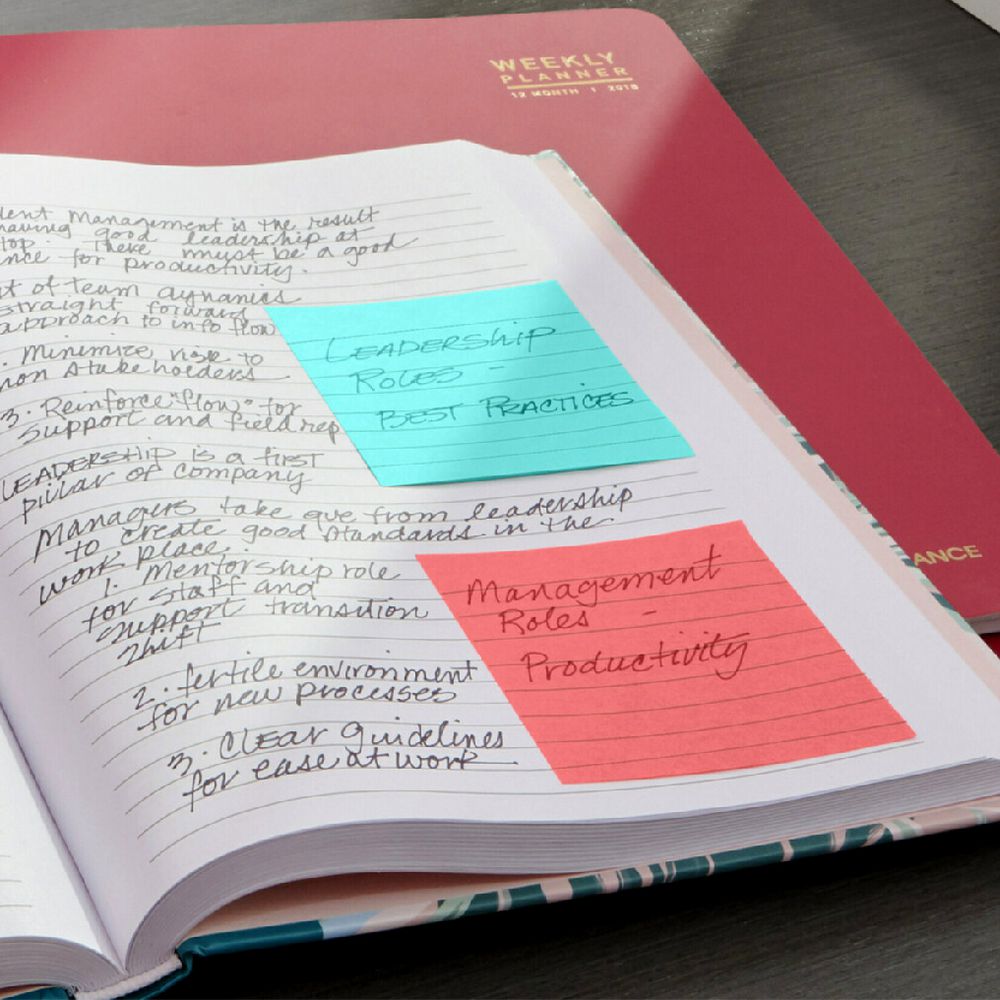 WEEKLY
PLANNER
12 MONTH | 2018
dent Management is the result
having good leadership at
top. There must be a good
nce for productivity.
t of team dynamics
straight forward
approach to info flow
. Minimize risk to
non stakeholders
3. Reinforce "flow" for
support and field rep
LEADERSHIP is a first
pillar of company
Managers take que from leadership
to create good standards in the
work place.
1. Mentorship role
for staff and
support transition
shift
2. fertile environment
for new processes
3. Clear guidelines
for ease at work
LEADERSHIP
ROLES -
BEST PRACTICES
Management
Roles -
Productivity
ANCE